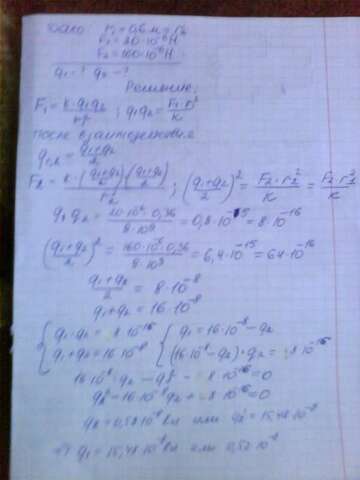 Дано r₁ = 0,6 м = r₂
F₁ = 20·10⁻⁶ Н
F₂ = 160·10⁻⁶ Н
q₁ - ? q₂ - ?
Решение:
F₁ = k·q₁q₂ / ; q₁q₂ = F₁·r² / k
после взаимодействия
= (q₁+q₂) / 2
F₂ = k·((q₁+q₂)/2)·((q₁+q₂)/2) / r₂² ; ((q₁+q₂)/2)² = F₂·r₂² / k = F₂·r² / k
q₁q₂ = 20·10⁻⁶·0,36 / 9·10⁹ = 0,8·10⁻¹⁵ = 8·10⁻¹⁶
((q₁+q₂)/2)² = 160·10⁻⁶·0,36 / 9·10⁹ = 6,4·10⁻¹⁵ = 64·10⁻¹⁶
(q₁+q₂)/2 = 8·10⁻⁸
q₁+q₂ = 16·10⁻⁸
{ q₁·q₂ = 8·10⁻¹⁶ { q₁ = 16·10⁻⁸ - q₂
q₁+q₂ = 16·10⁻⁸ (16·10⁻⁸ - q₂)·q₂ = 8·10⁻¹⁶
16·10⁻⁸ q₂ - q₂² - 8·10⁻¹⁶ = 0
q₂² - 16·10⁻⁸ q₂ + 8·10⁻¹⁶ = 0
q₂ = 0,52·10⁻⁸ Кл или q₂ = 15,48·10⁻⁸
q₁ = 15,48·10⁻⁸ Кл или 0,52·10⁻⁸